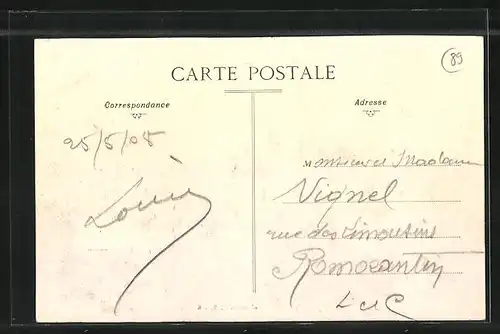 89
CARTE POSTALE
Correspondance
Adresse
25/5/08
Louis
Monsieur et Madame
Vignel
rue des Limousins
Romorantin
L et C